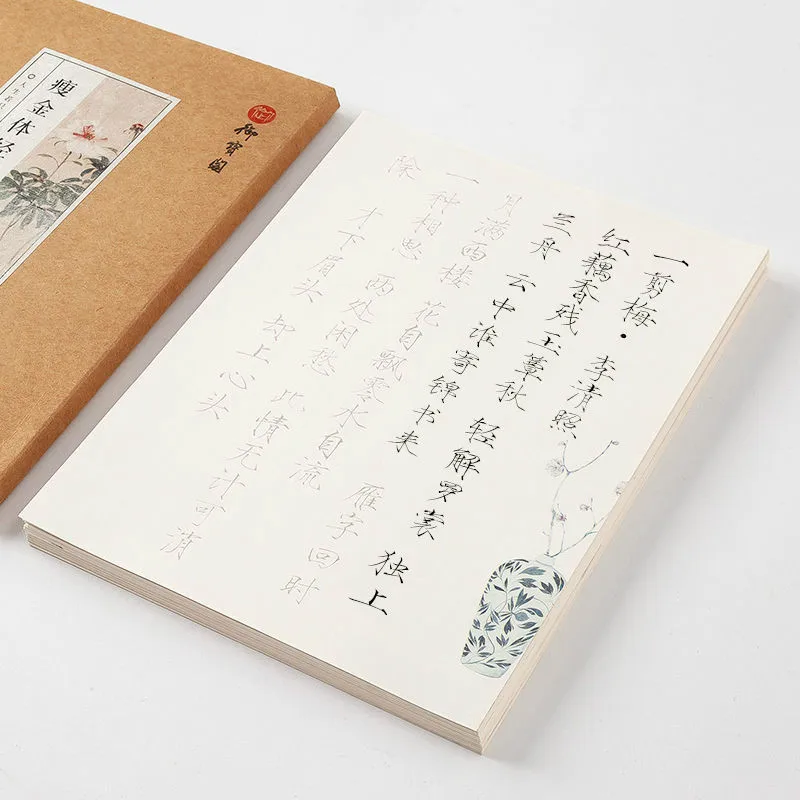 瘦金体经
人生若
御寶閣
一剪梅·李清照
红藕香残玉簟秋 轻解罗裳 独上
兰舟 云中谁寄锦书来 雁字回时
月满西楼 花自飘零水自流
一种相思 两处闲愁 此情无计可消
除 才下眉头 却上心头